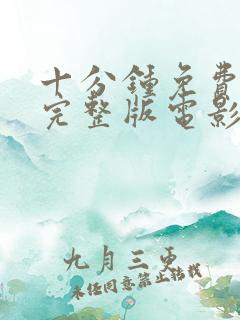 十分鍾免費
完整版電影
九月三更
未任同意禁止转载